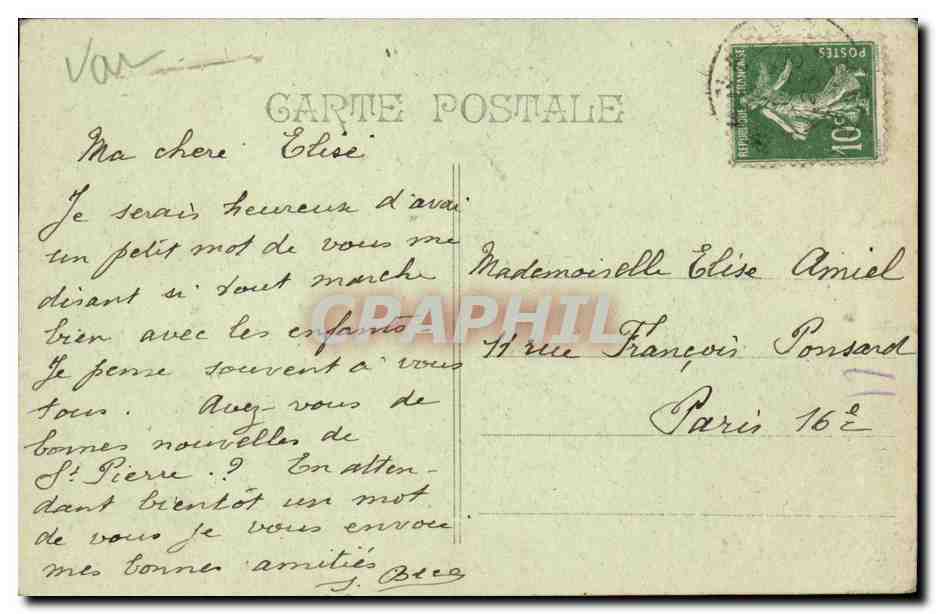 Var
CARTE POSTALE
REPUBLIQUE FRANCAISE
POSTES
10c
Ma chere Elise
Je serais heureux d'avoi
un petit mot de vous me
disant si tout marche
bien avec les enfants -
Je pense souvent à vous
tous. Avez-vous de
bonnes nouvelles de
St Pierre.? En atten-
dant bientôt un mot
de vous je vous envoi
mes bonnes amitiés
Mademoiselle Elise Amiel
11 rue François Ponsard
Paris 16e
CRAPHIL